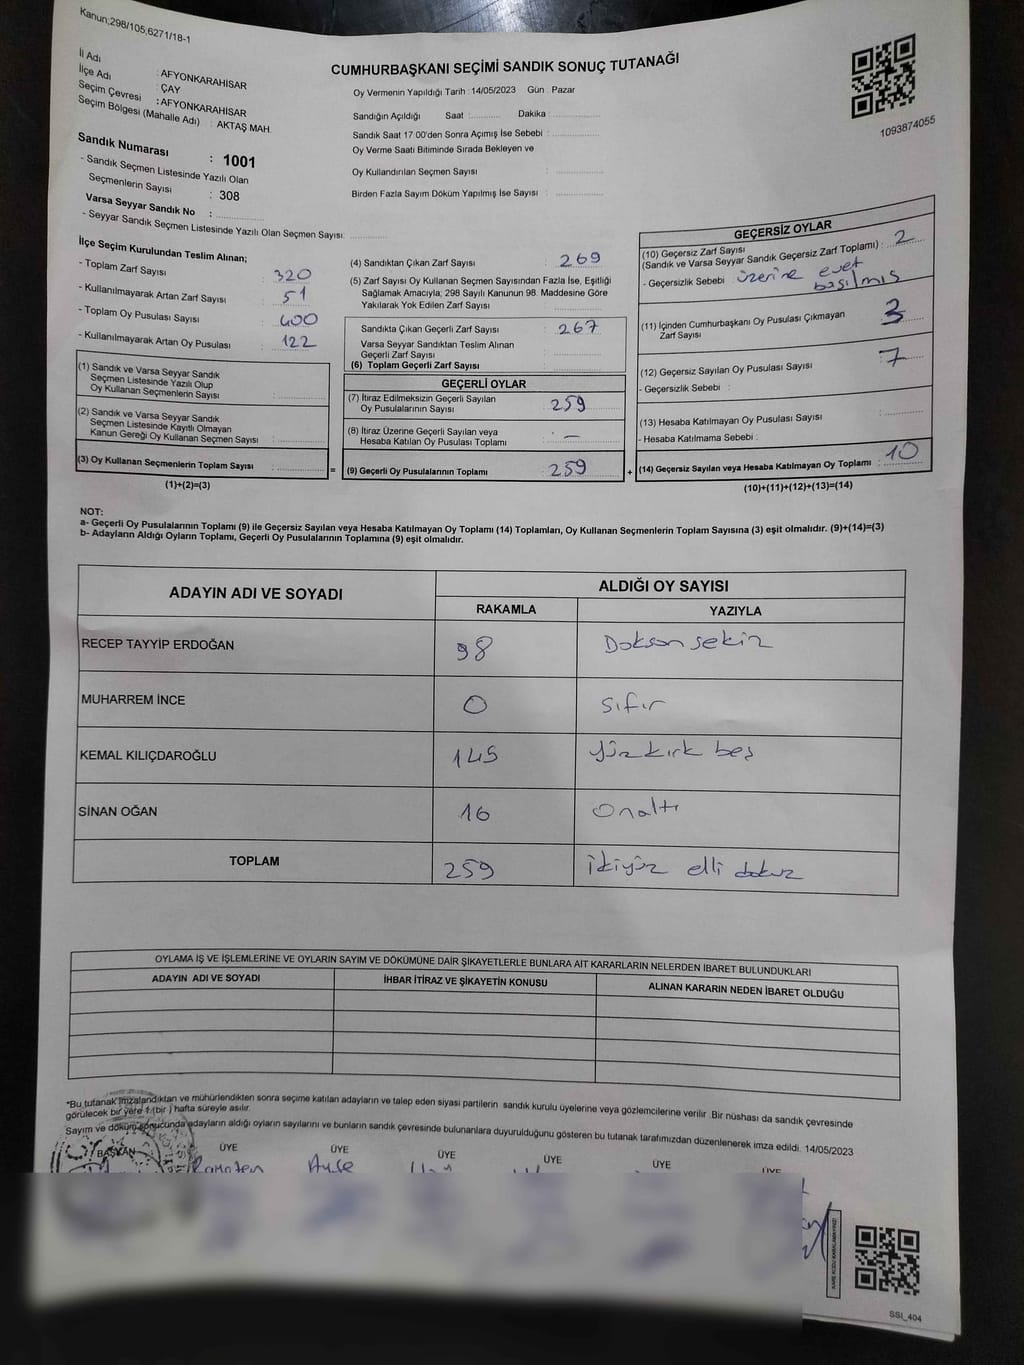 Kanun;298/105,6271/18-1
İl Adı : AFYONKARAHİSAR
İlçe Adı : ÇAY
Seçim Çevresi : AFYONKARAHİSAR
Seçim Bölgesi (Mahalle Adı) : AKTAŞ MAH.
Sandık Numarası : 1001
- Sandık Seçmen Listesinde Yazılı Olan
Seçmenlerin Sayısı : 308
Varsa Seyyar Sandık No :
- Seyyar Sandık Seçmen Listesinde Yazılı Olan Seçmen Sayısı:
CUMHURBAŞKANI SEÇİMİ SANDIK SONUÇ TUTANAĞI
Oy Vermenin Yapıldığı Tarih : 14/05/2023 Gün : Pazar
Sandığın Açıldığı Saat : Dakika :
Sandık Saat 17:00'den Sonra Açımış İse Sebebi :
Oy Verme Saati Bitiminde Sırada Bekleyen ve
Oy Kullandırılan Seçmen Sayısı :
Birden Fazla Sayım Döküm Yapılmış İse Sayısı :
1093874055
İlçe Seçim Kurulundan Teslim Alınan;
- Toplam Zarf Sayısı : 320
- Kullanılmayarak Artan Zarf Sayısı : 51
- Toplam Oy Pusulası Sayısı : 400
- Kullanılmayarak Artan Oy Pusulası : 122
(1) Sandık ve Varsa Seyyar Sandık
Seçmen Listesinde Yazılı Olup
Oy Kullanan Seçmenlerin Sayısı :
(2) Sandık ve Varsa Seyyar Sandık
Seçmen Listesinde Kayıtlı Olmayan
Kanun Gereği Oy Kullanan Seçmen Sayısı :
(3) Oy Kullanan Seçmenlerin Toplam Sayısı : =
(1)+(2)=(3)
(4) Sandıktan Çıkan Zarf Sayısı : 269
(5) Zarf Sayısı Oy Kullanan Seçmen Sayısından Fazla İse, Eşitliği
Sağlamak Amacıyla; 298 Sayılı Kanunun 98. Maddesine Göre
Yakılarak Yok Edilen Zarf Sayısı :
Sandıkta Çıkan Geçerli Zarf Sayısı : 267
Varsa Seyyar Sandıktan Teslim Alınan
Geçerli Zarf Sayısı :
(6) Toplam Geçerli Zarf Sayısı :
GEÇERLİ OYLAR
(7) İtiraz Edilmeksizin Geçerli Sayılan
Oy Pusulalarının Sayısı : 259
(8) İtiraz Üzerine Geçerli Sayılan veya
Hesaba Katılan Oy Pusulası Toplamı : —
(9) Geçerli Oy Pusulalarının Toplamı : 259 +
GEÇERSİZ OYLAR
(10) Geçersiz Zarf Sayısı
(Sandık ve Varsa Seyyar Sandık Geçersiz Zarf Toplamı) : 2
- Geçersizlik Sebebi : üzerine evet
basılmış
(11) İçinden Cumhurbaşkanı Oy Pusulası Çıkmayan
Zarf Sayısı : 3
(12) Geçersiz Sayılan Oy Pusulası Sayısı : 7
- Geçersizlik Sebebi :
(13) Hesaba Katılmayan Oy Pusulası Sayısı :
- Hesaba Katılmama Sebebi :
(14) Geçersiz Sayılan veya Hesaba Katılmayan Oy Toplamı : 10
(10)+(11)+(12)+(13)=(14)
NOT:
a- Geçerli Oy Pusulalarının Toplamı (9) ile Geçersiz Sayılan veya Hesaba Katılmayan Oy Toplamı (14) Toplamları, Oy Kullanan Seçmenlerin Toplam Sayısına (3) eşit olmalıdır. (9)+(14)=(3)
b- Adayların Aldığı Oyların Toplamı, Geçerli Oy Pusulalarının Toplamına (9) eşit olmalıdır.
ADAYIN ADI VE SOYADI ALDIĞI OY SAYISI
RAKAMLA YAZIYLA
RECEP TAYYİP ERDOĞAN 98 Doksan sekiz
MUHARREM İNCE 0 sıfır
KEMAL KILIÇDAROĞLU 145 yüzkırk beş
SİNAN OĞAN 16 Onaltı
TOPLAM 259 İkiyüz elli dokuz
OYLAMA İŞ VE İŞLEMLERİNE VE OYLARIN SAYIM VE DÖKÜMÜNE DAİR ŞİKAYETLERLE BUNLARA AİT KARARLARIN NELERDEN İBARET BULUNDUKLARI
ADAYIN ADI VE SOYADI İHBAR İTİRAZ VE ŞİKAYETİN KONUSU ALINAN KARARIN NEDEN İBARET OLDUĞU
*Bu tutanak imzalandıktan ve mühürlendikten sonra seçime katılan adayların ve talep eden siyasi partilerin sandık kurulu üyelerine veya gözlemcilerine verilir. Bir nüshası da sandık çevresinde
görülecek bir yere 1 (bir ) hafta süreyle asılır.
Sayım ve döküm sonucunda adayların aldığı oyların sayılarını ve bunların sandık çevresinde bulunanlara duyurulduğunu gösteren bu tutanak tarafımızdan düzenlenerek imza edildi. 14/05/2023
BAŞKAN ÜYE ÜYE ÜYE ÜYE ÜYE ÜYE
Ramazan Ayşe
KARE KODU KARALAMAYINIZ!
SSI_404